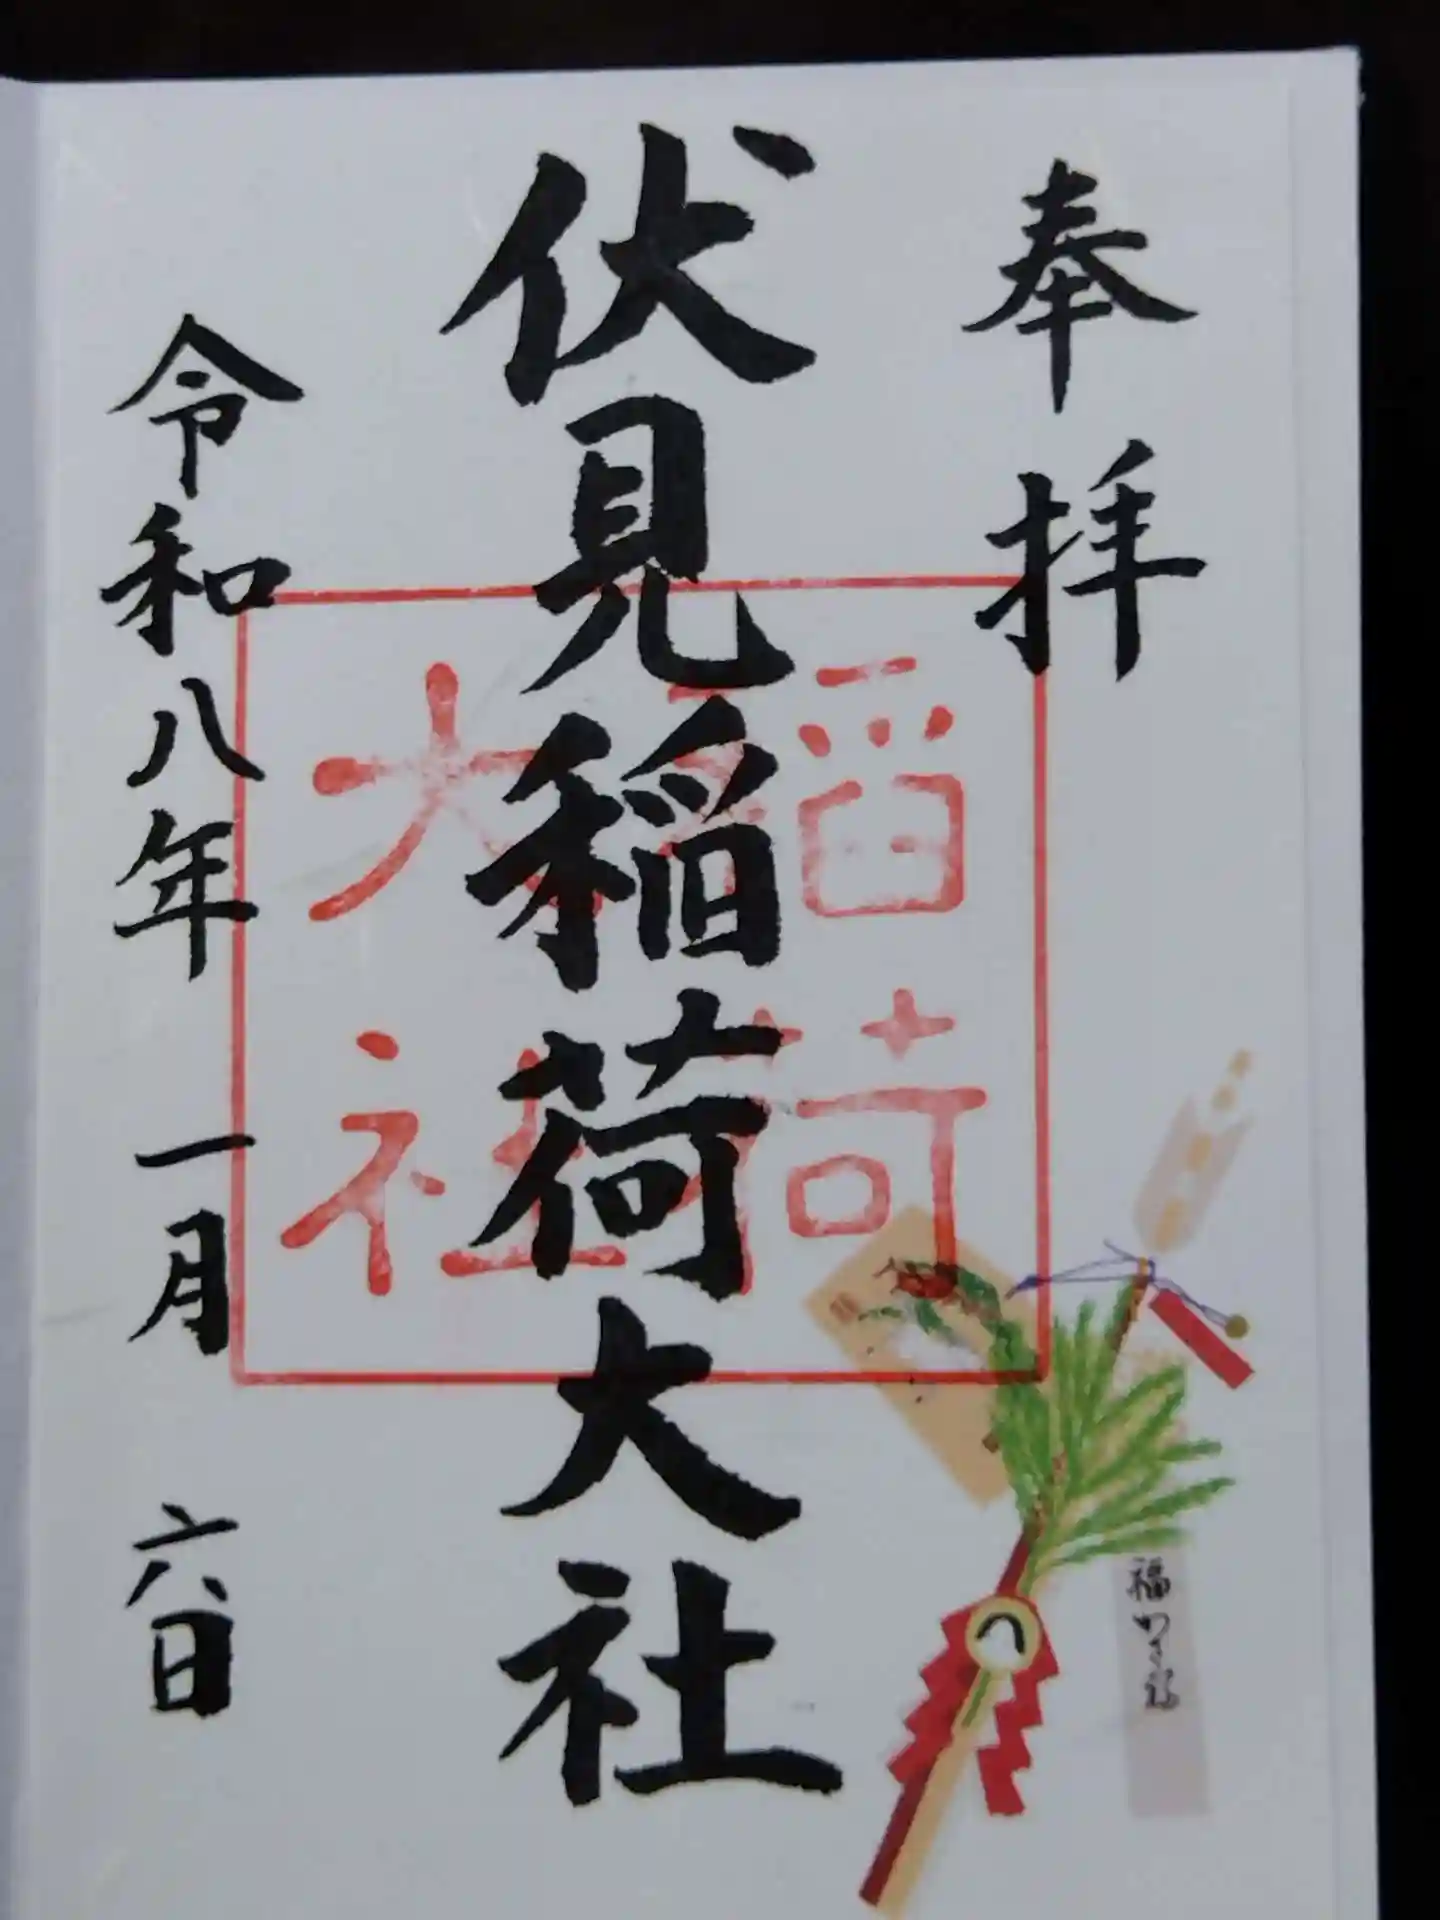 奉拝
伏見稲荷大社
稲荷
大社
令和八年 一月 六日